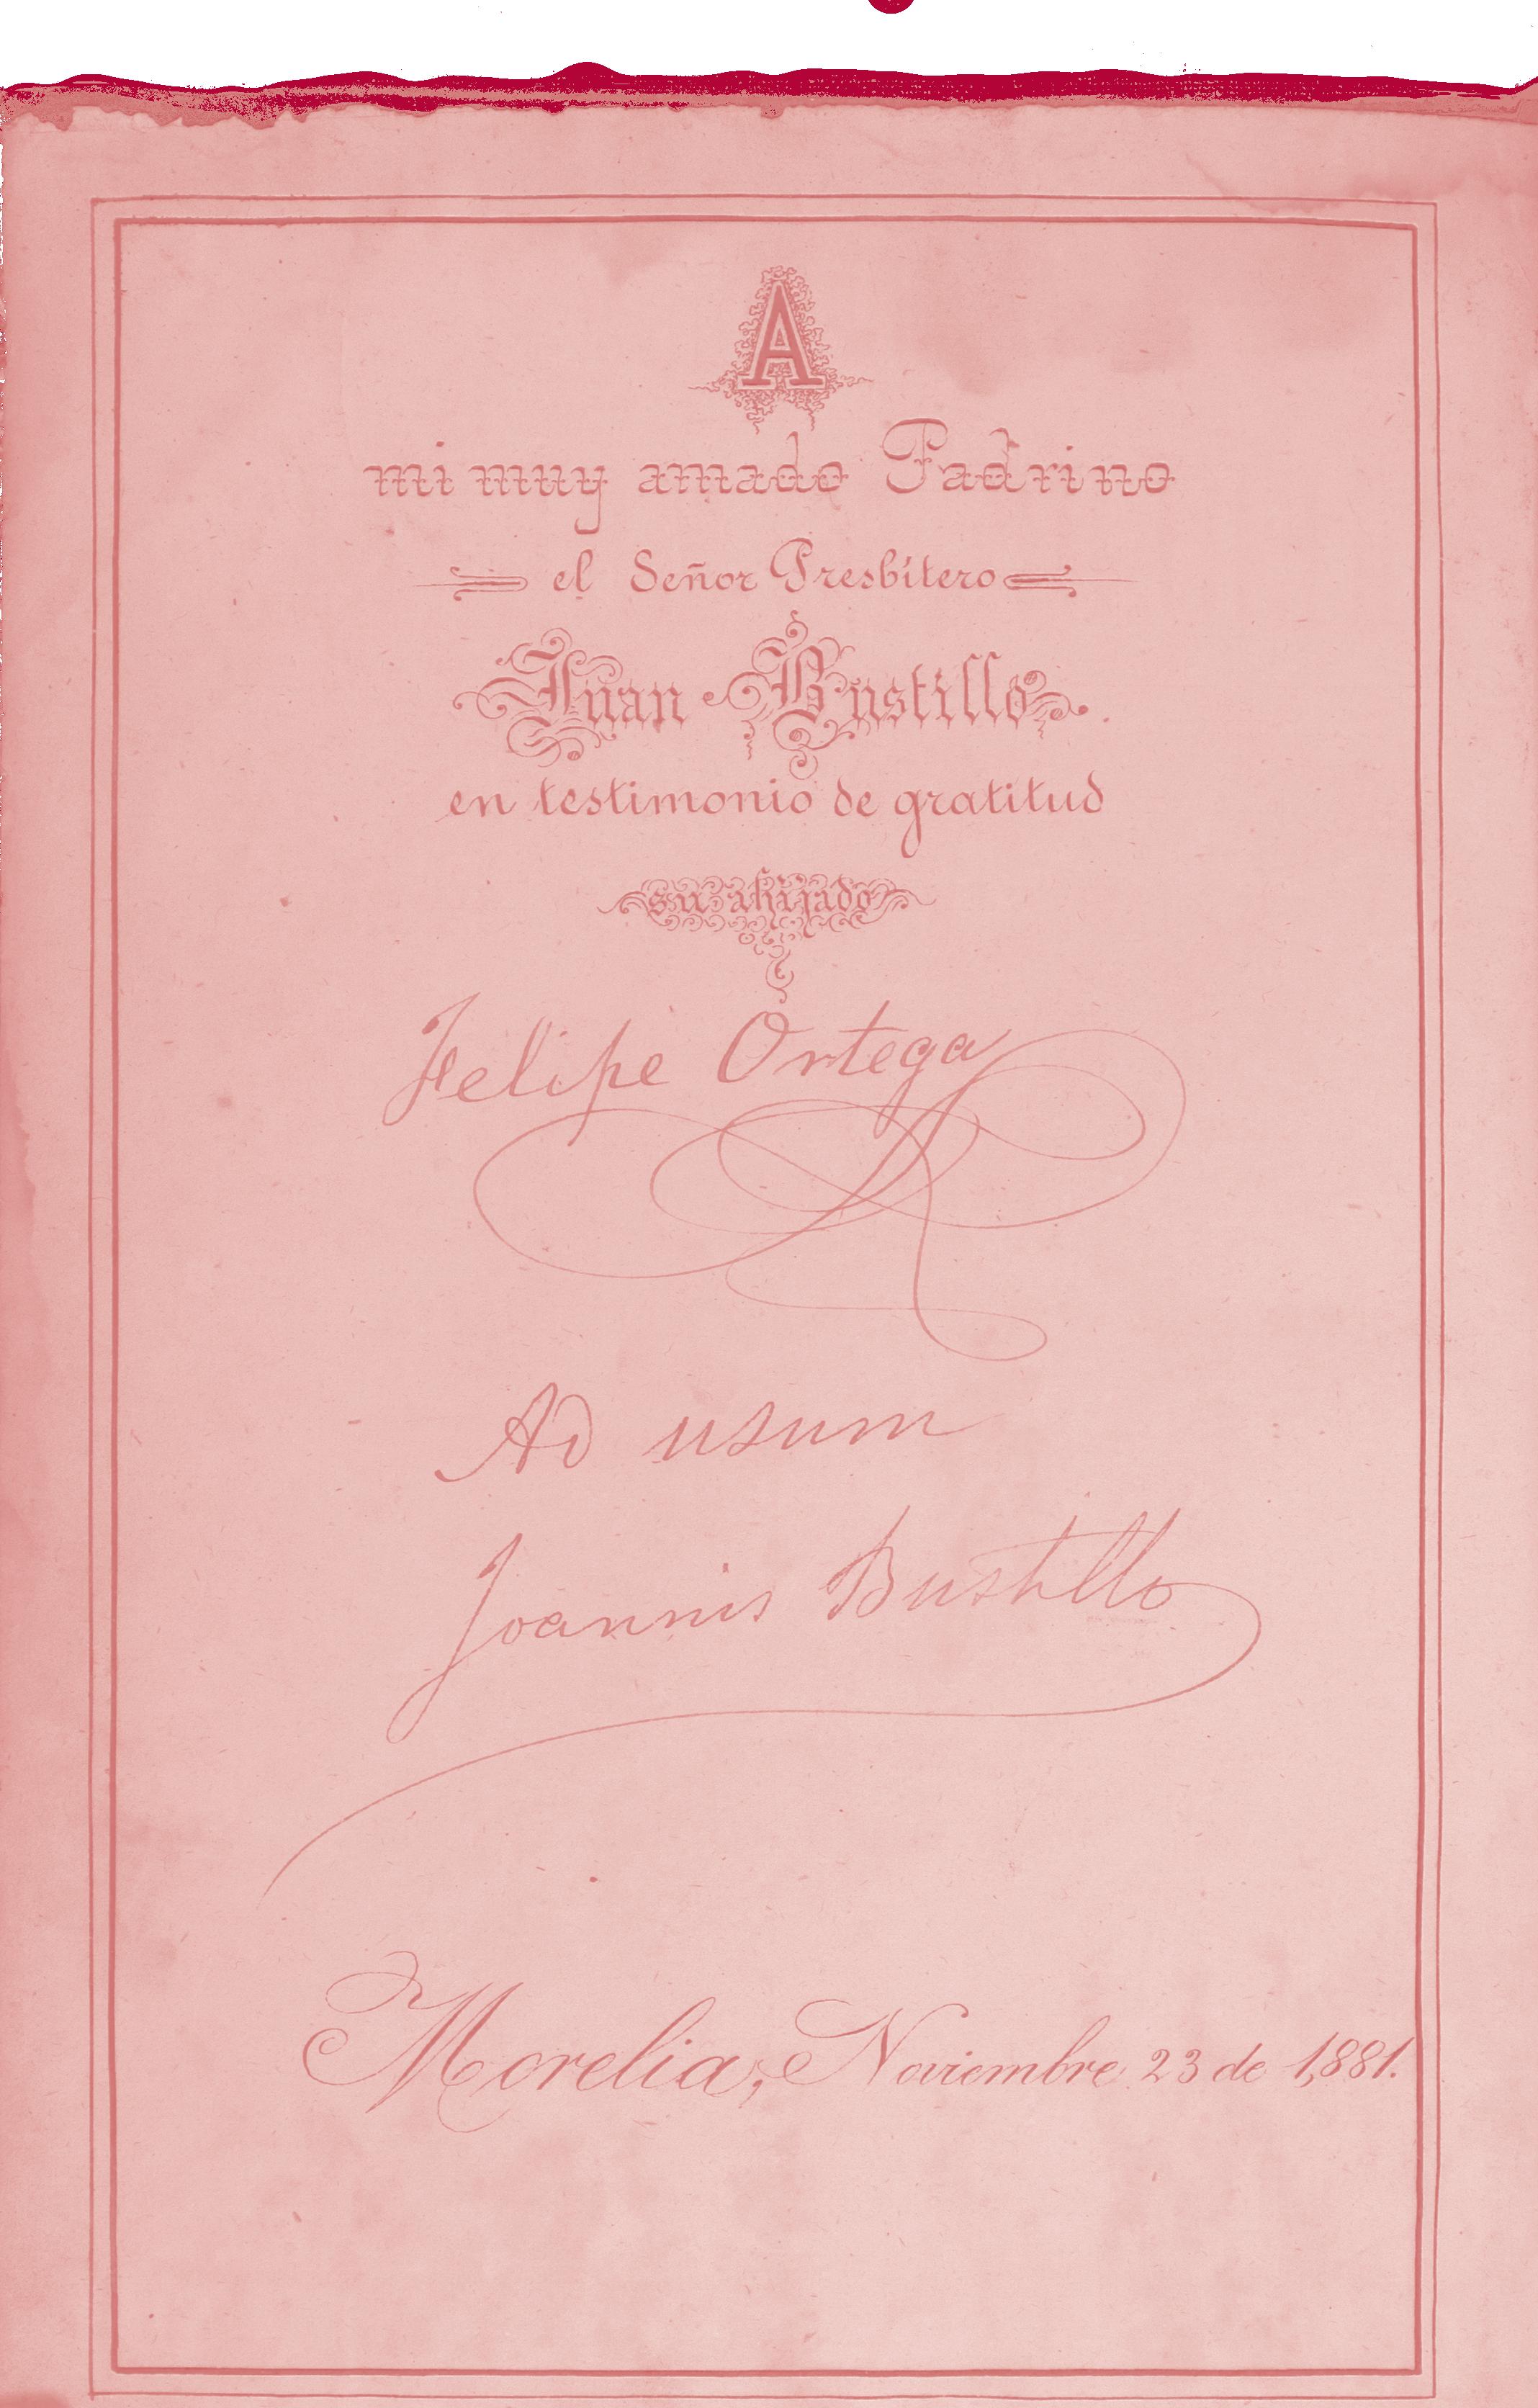 A
mi muy amado Padrino
el Señor Presbítero
Juan Bustillo.
en testimonio de gratitud
su ahijado
Felipe Ortega
Ad usum
Joannis Bustillo
Morelia, Noviembre 23 de 1,881.